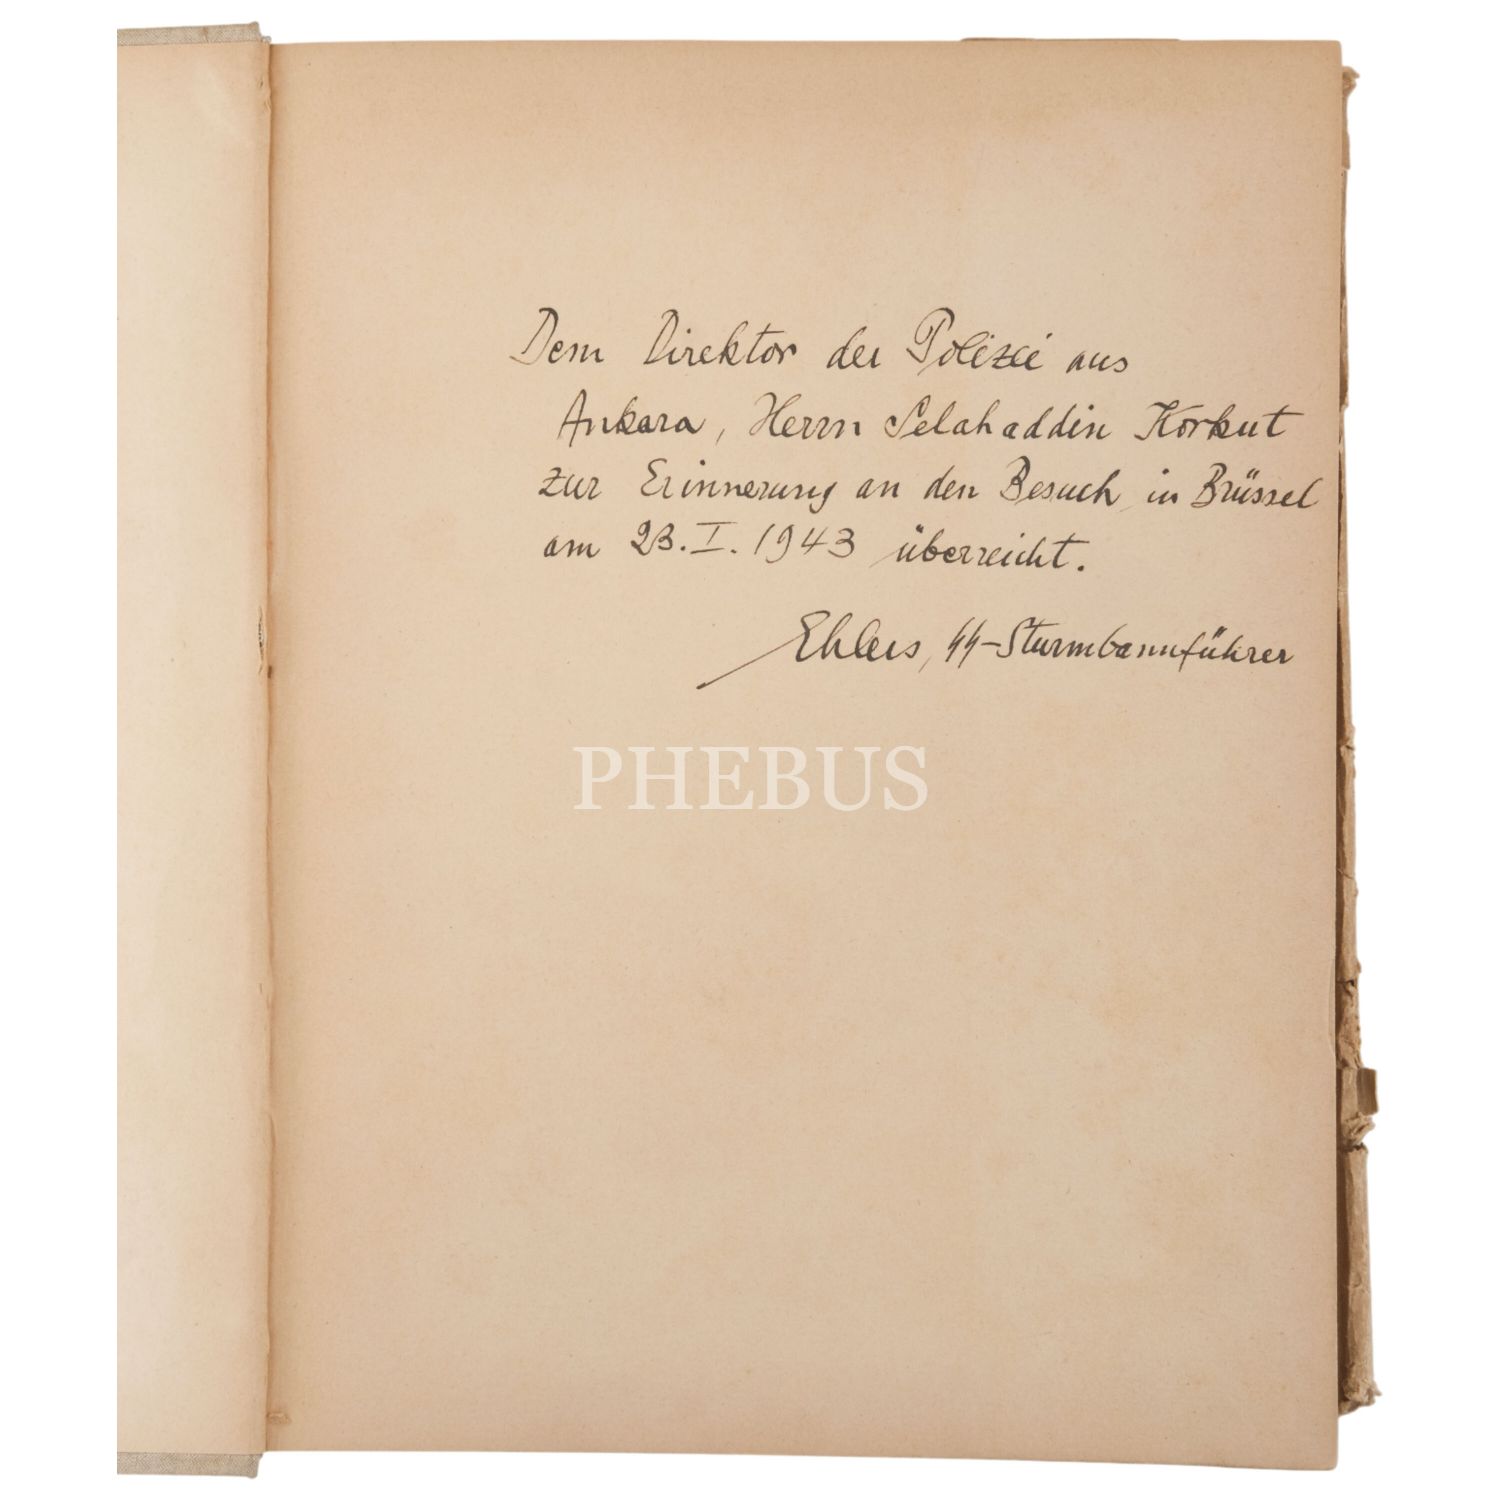 Dem Direktor der Polizei aus
Ankara, Herrn Selahaddin Korkut
zur Erinnerung an den Besuch in Brüssel
am 23. I. 1943 überreicht.
Ehlers, SS-Sturmbannführer
PHEBUS